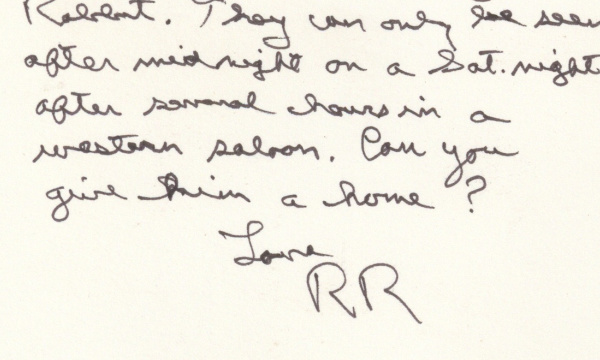 Rabbit. They can only be seen
after midnight on a Sat. night
after several hours in a
western saloon. Can you
give him a home?
Love
RR